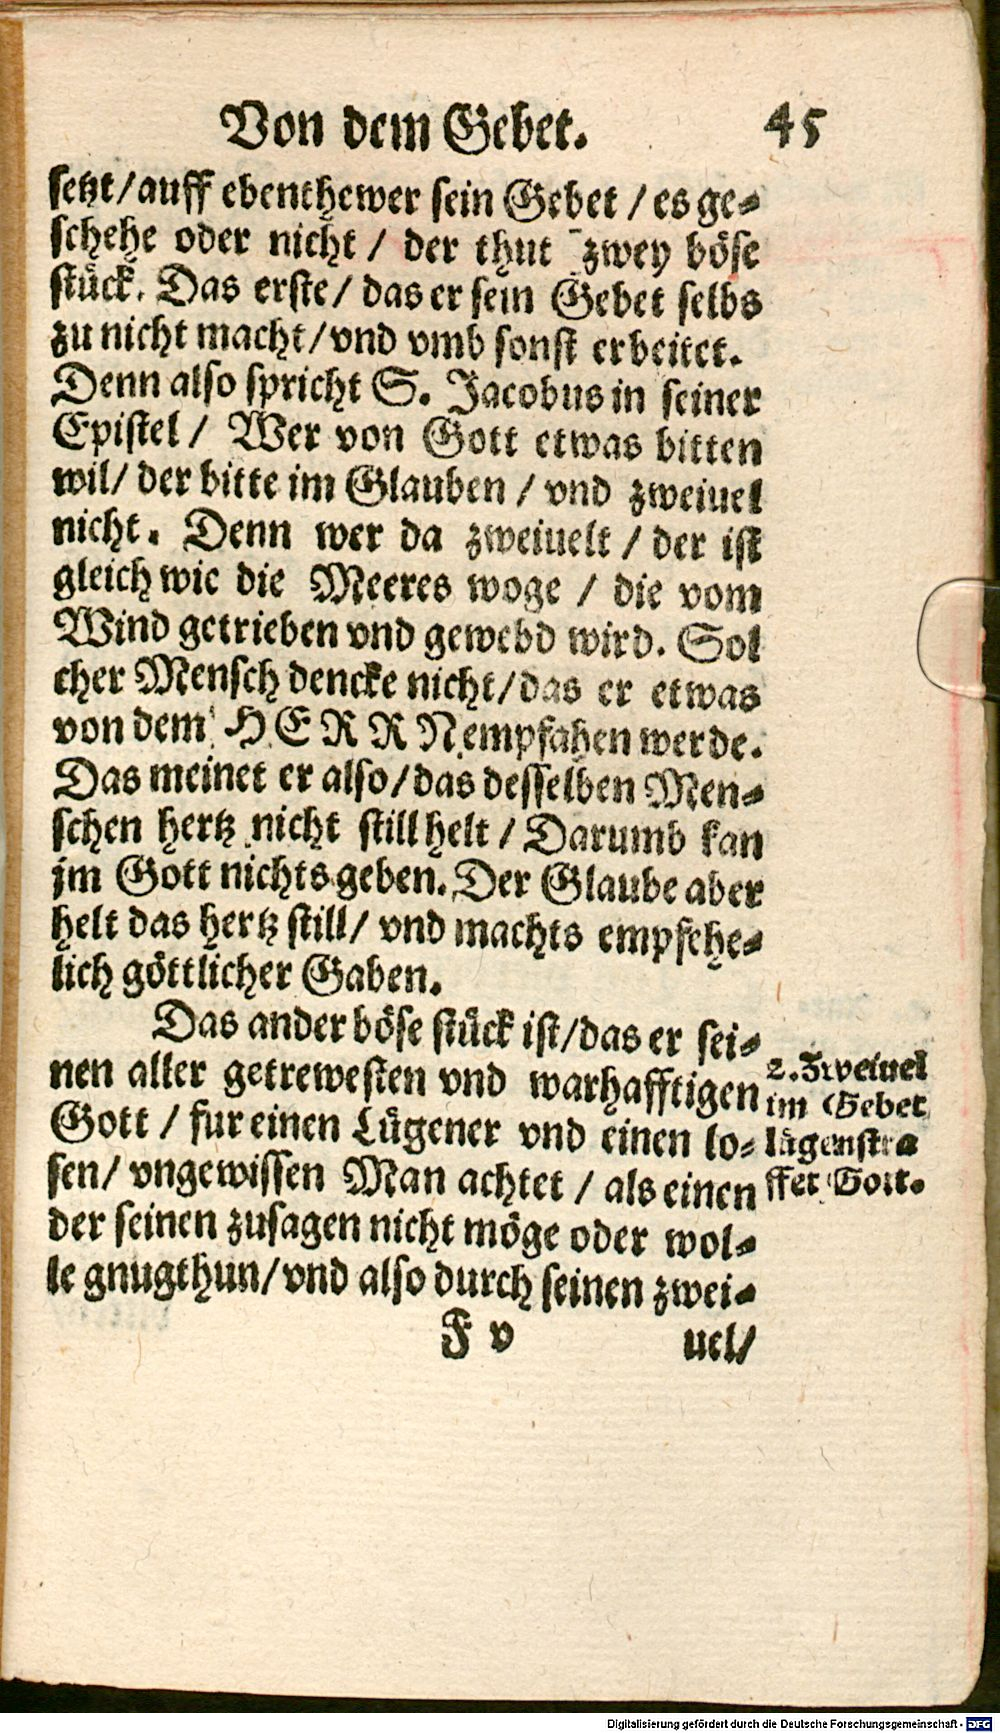 Von dem Gebet. 45
setzt/auff ebenthewer sein Gebet / es ge-
schehe oder nicht / der thut zwey böse
stück. Das erste/ das er sein Gebet selbs
zu nicht macht/vnd vmb sonst erbeitet.
Denn also spricht S. Jacobus in seiner
Epistel / Wer von Gott etwas bitten
wil/ der bitte im Glauben / vnd zweiuel
nicht. Denn wer da zweiuelt / der ist
gleich wie die Meeres woge / die vom
Wind getrieben vnd gewebd wird. Sol
cher Mensch dencke nicht/das er etwas
von dem HERRN empfahen werde.
Das meinet er also/das desselben Men-
schen hertz nicht still helt / Darumb kan
jm Gott nichts geben. Der Glaube aber
helt das hertz still/ vnd machts empfehe-
lich göttlicher Gaben.
Das ander böse stück ist/das er sei-
nen aller getrewesten vnd warhafftigen
Gott / fur einen Lügener vnd einen lo-
sen/ vngewissen Man achtet / als einen
der seinen zusagen nicht möge oder wol-
le gnugthun/vnd also durch seinen zwei-
F v uel/
2. Zweiuel
im Gebet
lügenstra
ffet Gott.
Digitalisierung gefördert durch die Deutsche Forschungsgemeinschaft - DFG